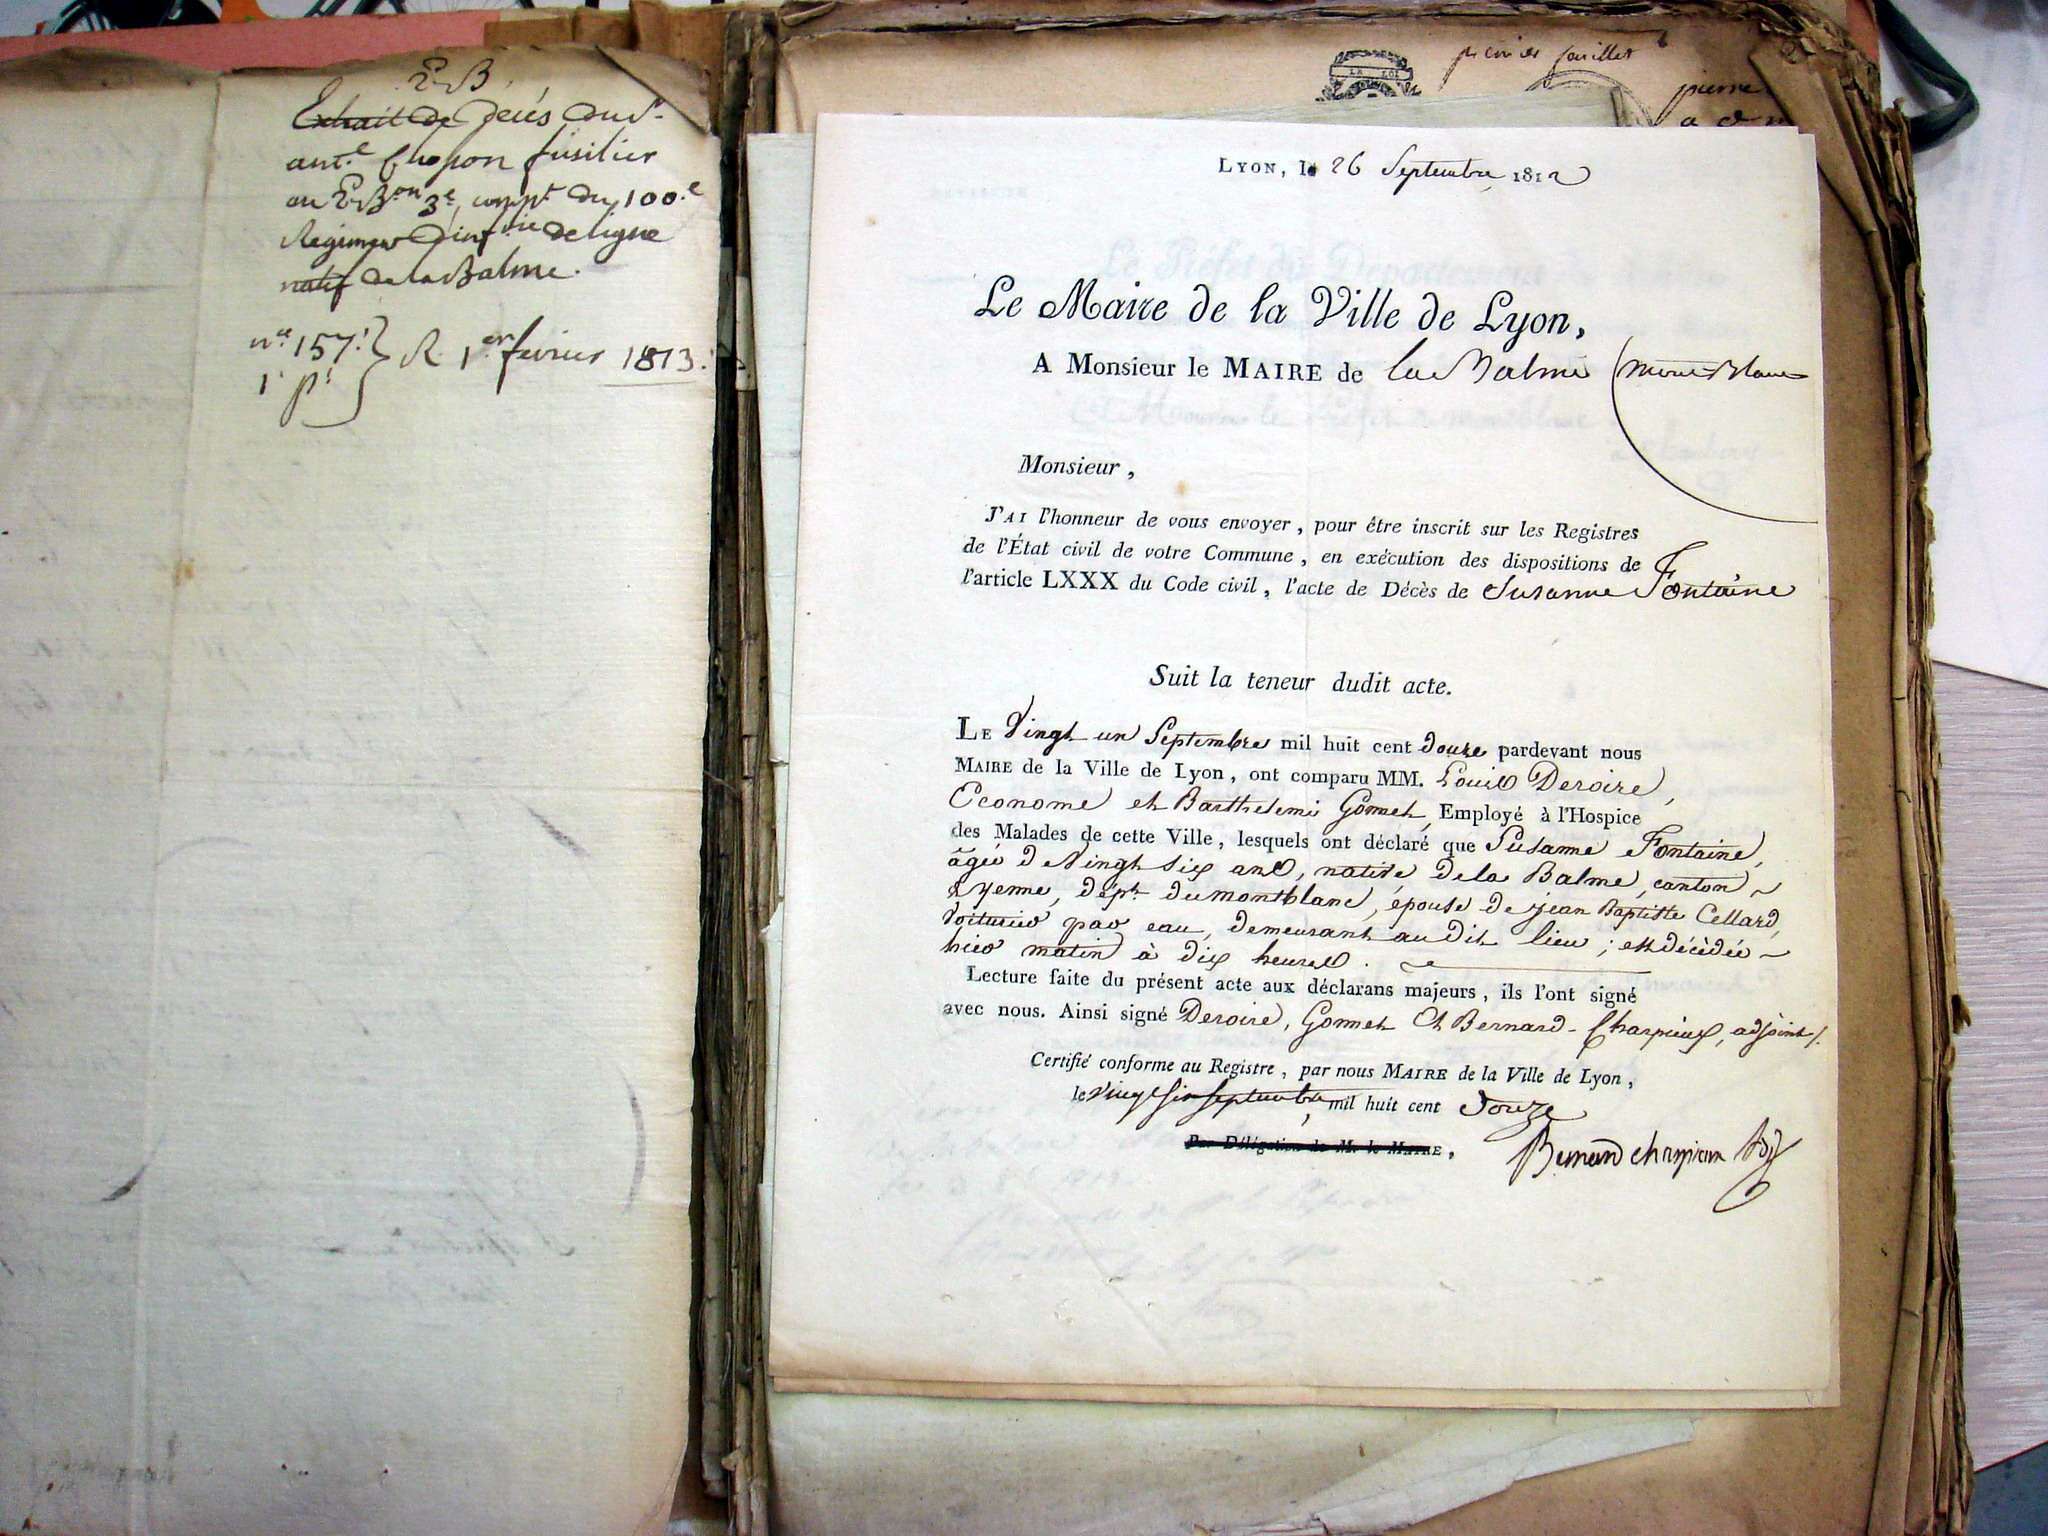 Extrait de decés du Sr
ant.e Chapon fusilier
3.e comp.e du 100.e
Regiment d'inf.rie de ligne
natif de la Balme.
n.º 157.
R. 1.er fevrier 1813.
premier feuillet
LA LOI
pierre
LYON, le 26 Septembre 1812
Le Maire de la Ville de Lyon,
A Monsieur le MAIRE de la Balme (Mont Blanc
Monsieur,
J'AI l'honneur de vous envoyer, pour être inscrit sur les Registres
de l'État civil de votre Commune, en exécution des dispositions de
l'article LXXX du Code civil, l'acte de Décès de Susanne Fontaine
Suit la teneur dudit acte.
LE Vingt un Septembre mil huit cent douze pardevant nous
MAIRE de la Ville de Lyon, ont comparu MM. Louis Deroire,
Econome et Barthelemi Gonnet, Employé à l'Hospice
des Malades de cette Ville, lesquels ont déclaré que Susanne Fontaine,
âgée de Vingt six ans, native de la Balme, canton
d'yenne, dép.t du montblanc, épouse de jean Baptiste Cellard,
Voiturier par eau, demeurant au dit lieu; est décédée
hier matin à dix heures.
Lecture faite du présent acte aux déclarans majeurs, ils l'ont signé
avec nous. Ainsi signé Deroire, Gonnet et Bernard-Charpieux, adjoint/.
Certifié conforme au Registre, par nous MAIRE de la Ville de Lyon,
le vingt six septembre mil huit cent Douze
Par Délégation de M. le MAIRE,
Bernard charpieux Adj